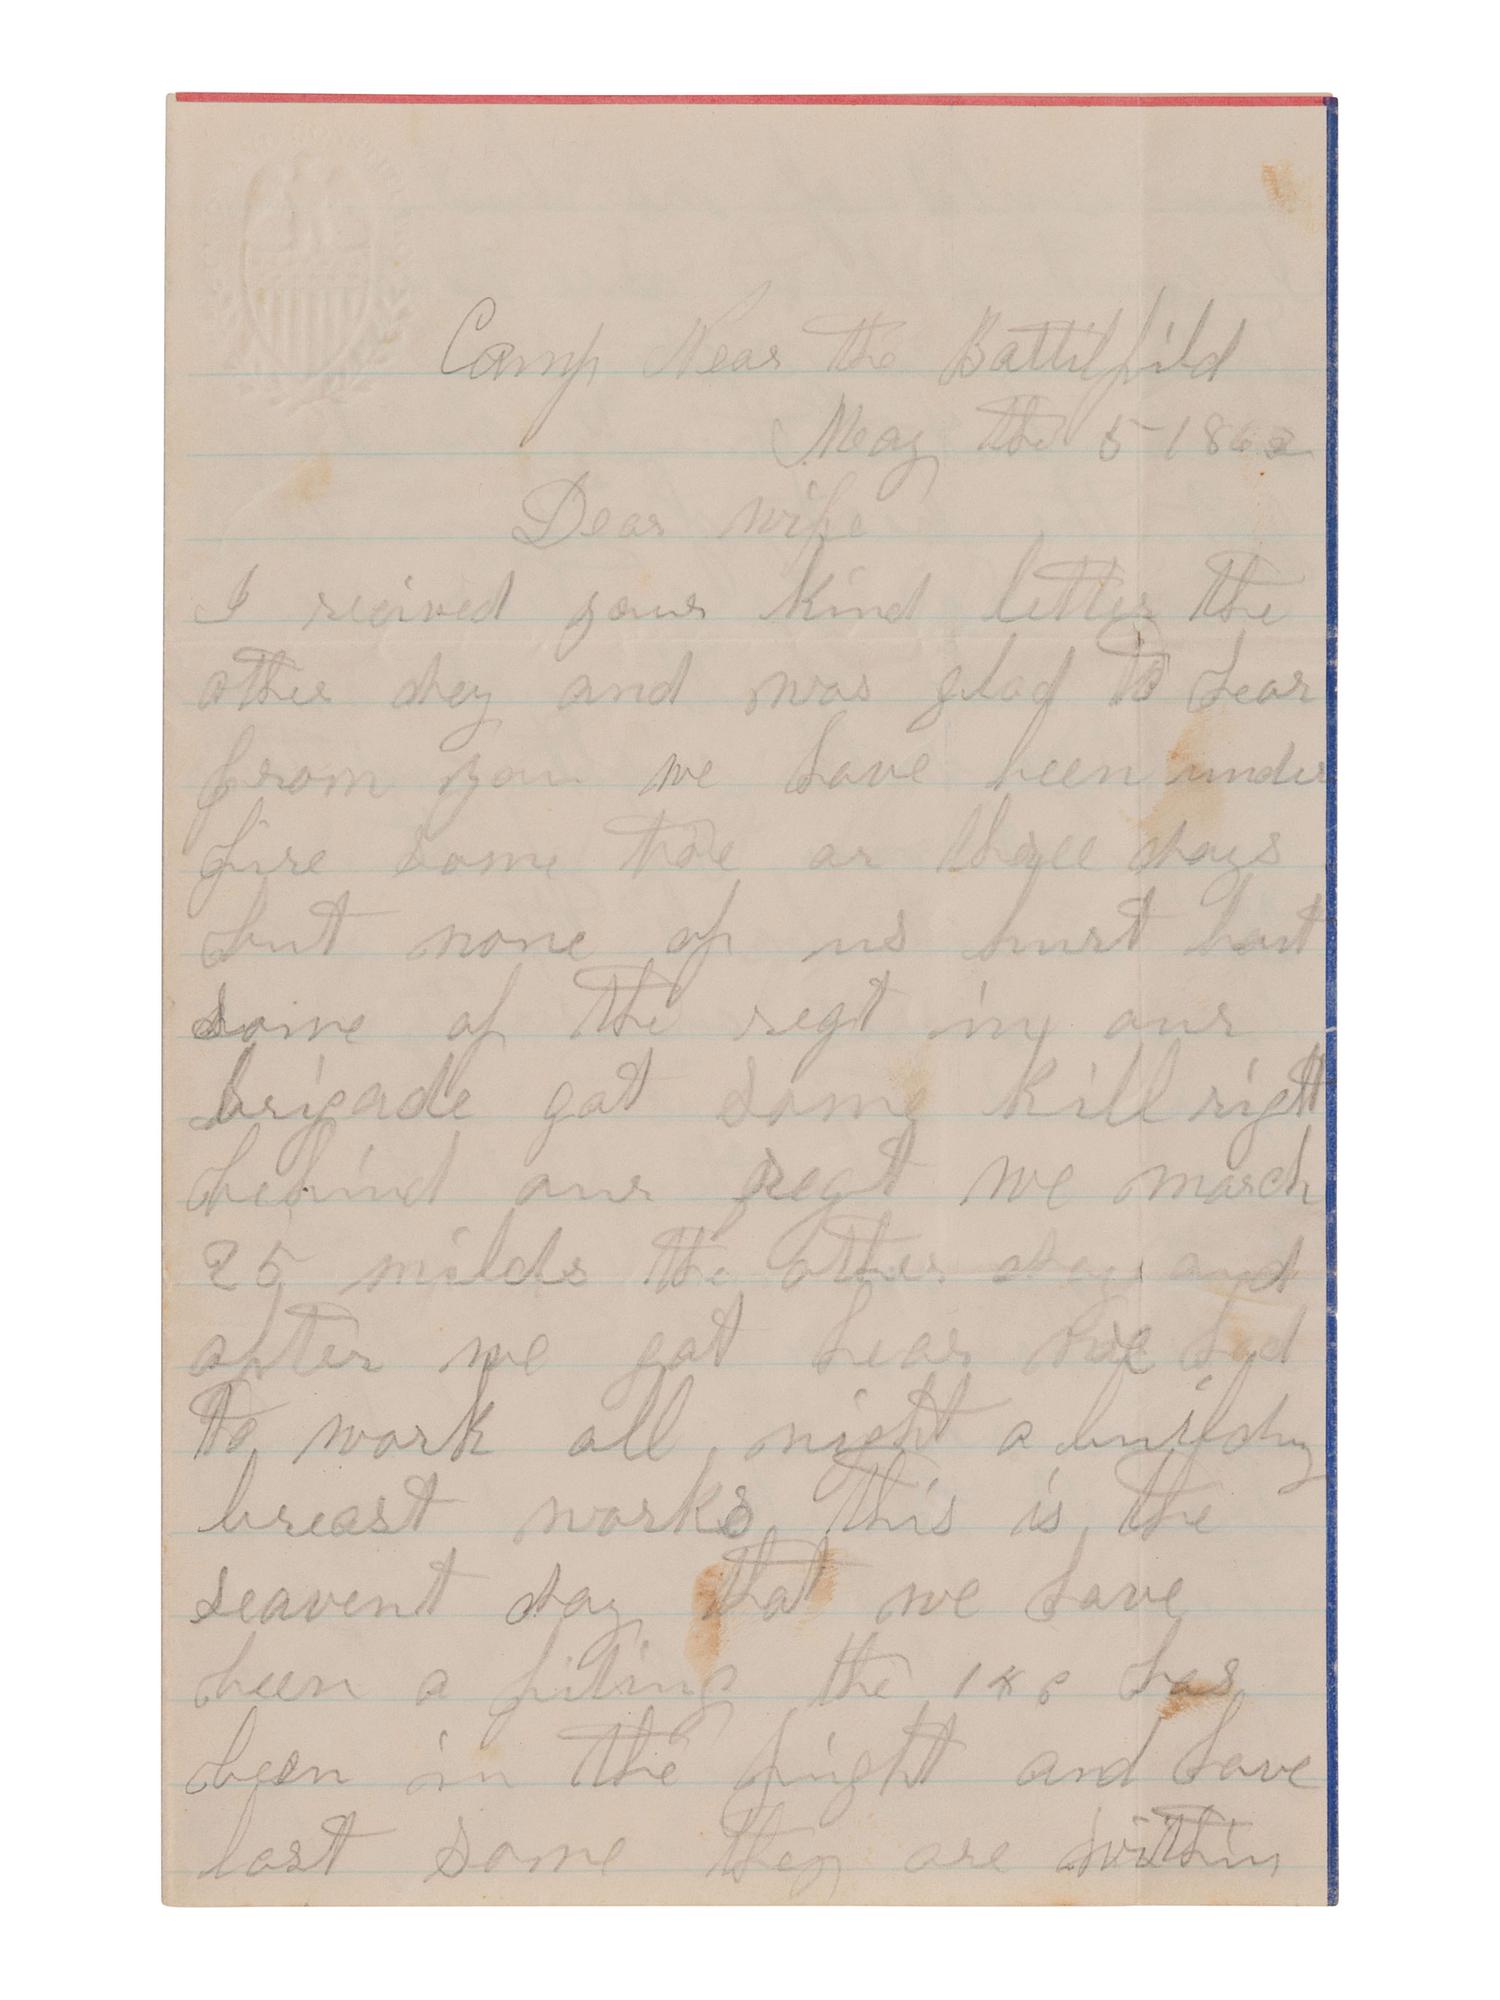 Camp Near the Battilfild
May the 5 1863
Dear wife
I recived your kind letter the
other day and was glad to hear
from you we have been under
fire some twoe or three days
but none of us hurt but
some of the regt in our
brigade got some kill right
behind our regt we march
25 milds the other day and
after we got hear we had
to work all night a building
breast works this is the
seavent day that we have
been a fiting the has
been in the finght and have
lost some they are within